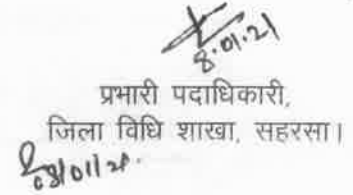 8.01.21
प्रभारी पदाधिकारी,
जिला विधि शाखा, सहरसा।